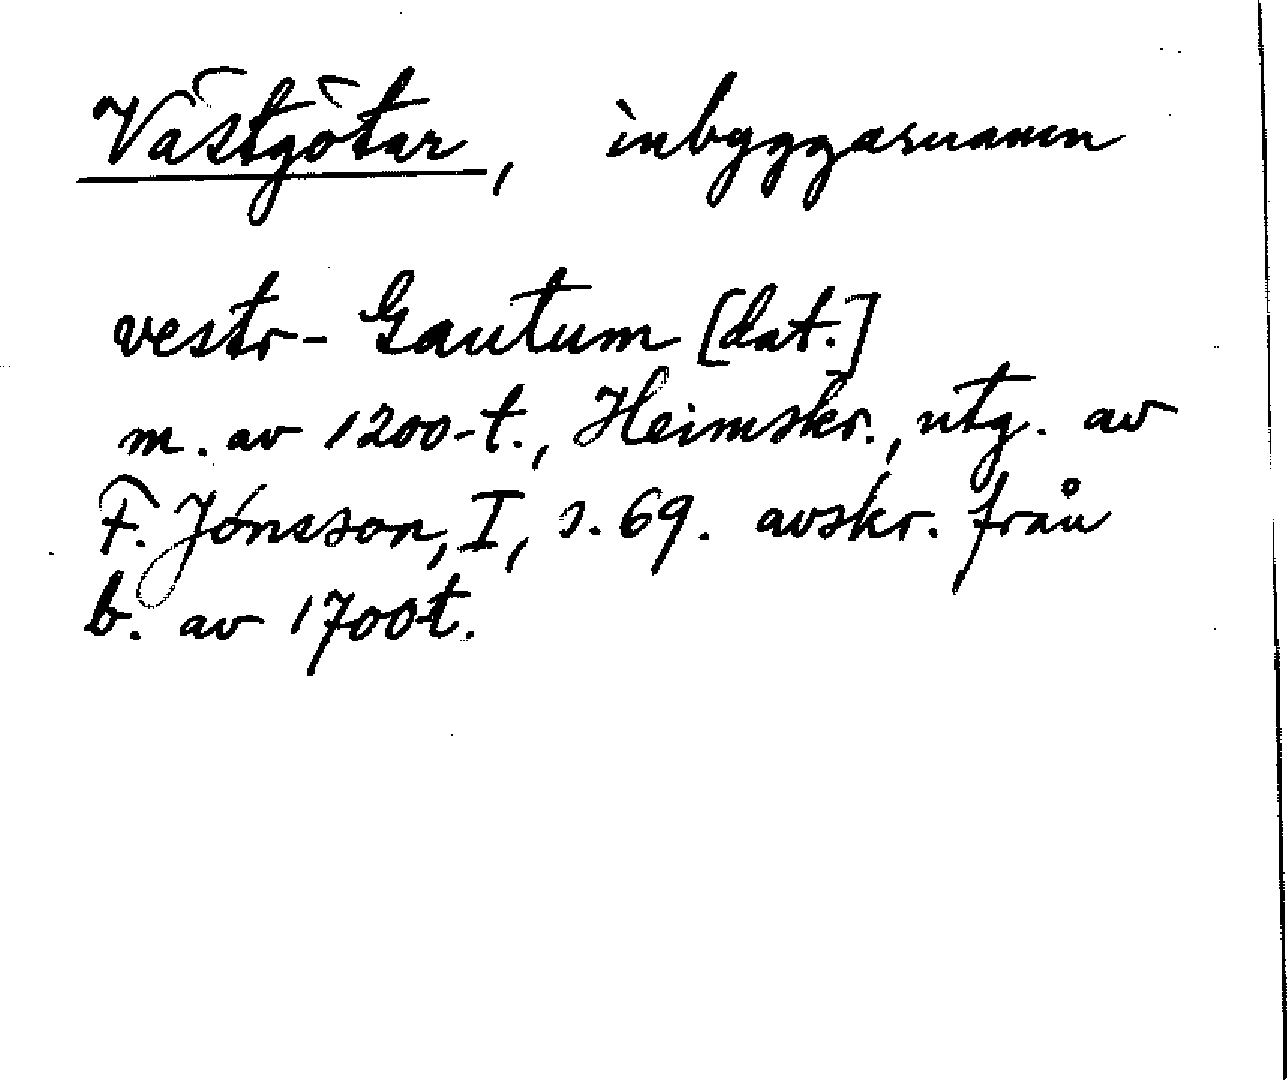 Västgötar, inbyggarnamn
vestr- Gautum [dat.]
m. av 1200-t., Heimskr., utg. av
F. Jónsson, I, s. 69. avskr. från
b. av 1700t.